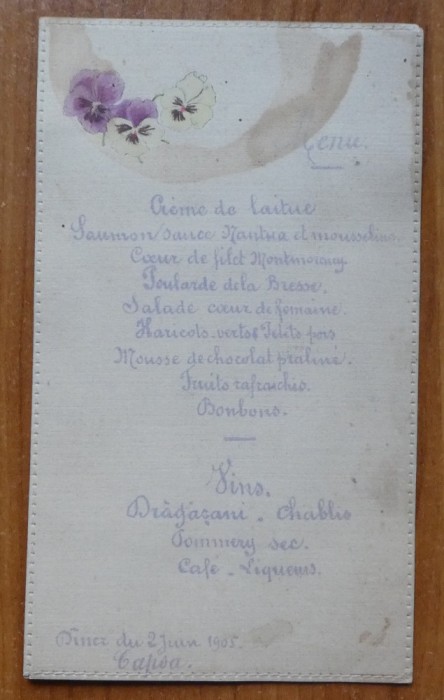 Menu.
Crème de laitue
Saumon sauce Nantua et mousseline.
Cœur de filet Montmorency
Poularde de la Bresse.
Salade cœur de romaine.
Haricots-verts & Petits pois
Mousse de chocolat praliné.
Fruits rafraichis.
Bonbons.
Vins.
Drăgăşani - Chablis
Pommery sec.
Café - Liqueurs.
Diner du 2 juin 1905.
Capsa.